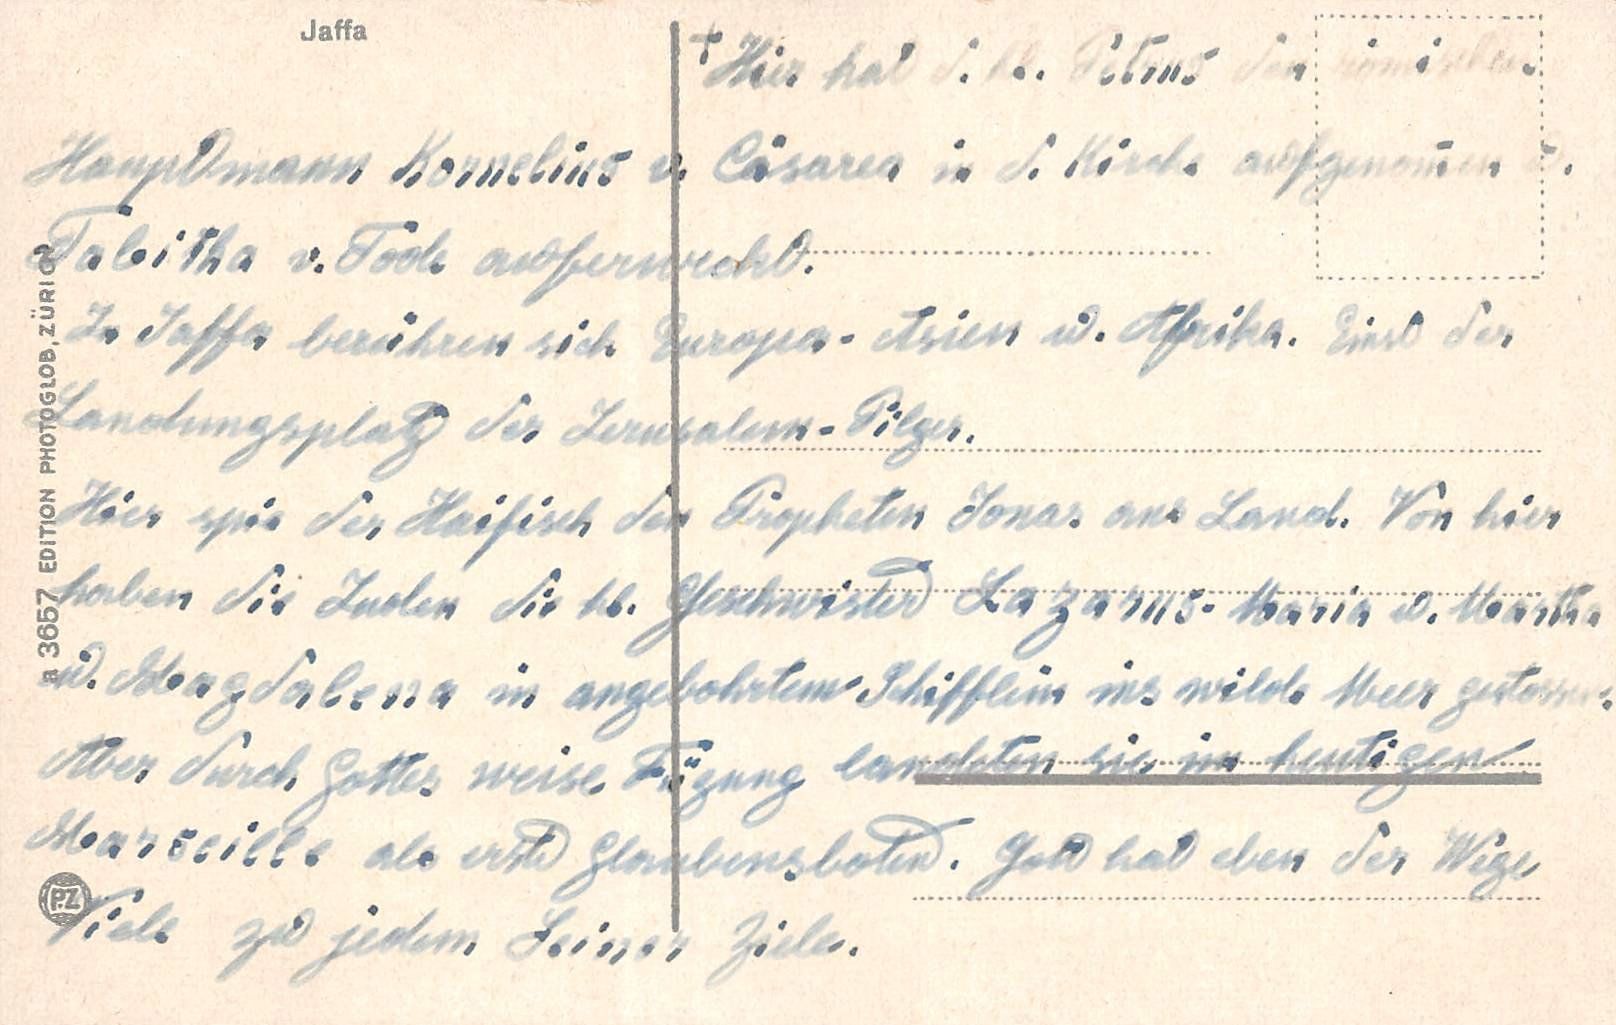 Jaffa
† Hier hat d. hl. Petrus den römischen
Hauptmann Kornelius v. Cäsarea in d. Kirche aufgenom̄en u.
Tabitha v. Tode auferweckt.
In Jaffa berühren sich Europa - Asien u. Afrika. Einst der
Landungsplatz der Jerusalem - Pilger.
Hier spie der Haifisch den Propheten Jonas ans Land. Von hier
haben die Juden die hl. Geschwister Lazarus - Maria u. Martha
u. Magdalena in angebohrtem Schifflein ins wilde Meer gestossen.
Aber durch Gottes weise Fügung landeten sie im heutigen
Marseille als erste Glaubensboten. Gott hat eben der Wege
Viele zu jedem Seiner Ziele.
a 3657 EDITION PHOTOGLOB, ZÜRICH
PZ